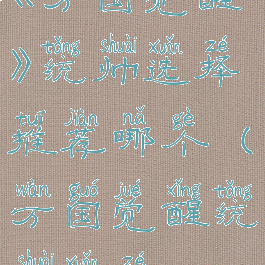 《万国觉醒
tǒng shuài xuǎn zé
》统帅选择
tuī jiàn nǎ gè
推荐哪个（
wàn guó jué xǐng tǒng
万国觉醒统
shuài xuǎn zé